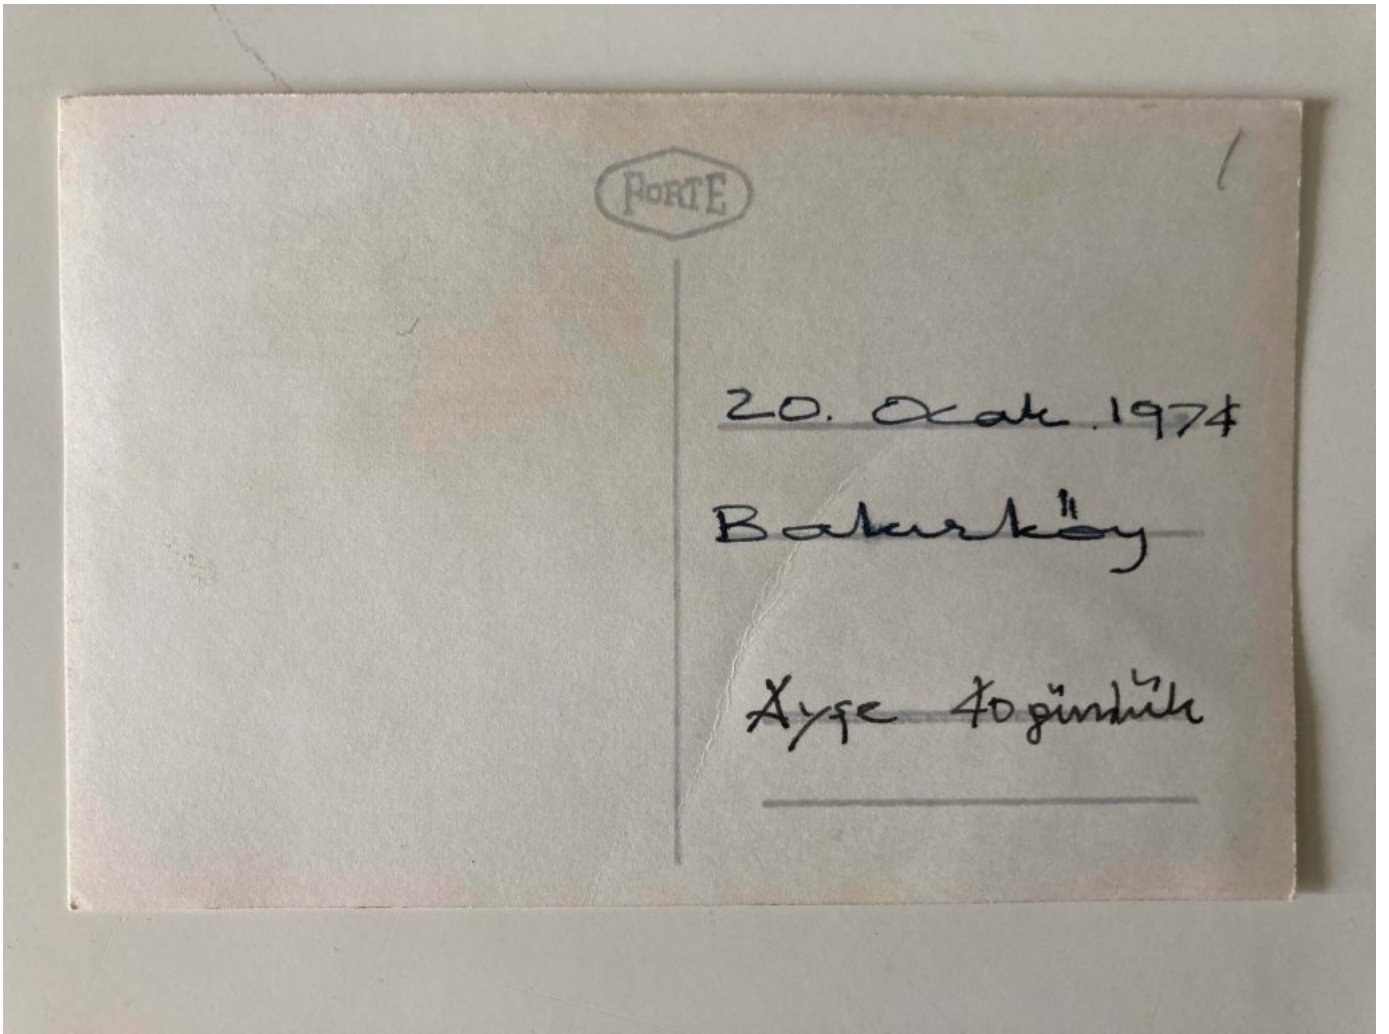 FORTE
20. Ocak. 1974
Bakırköy
Ayşe 40 günlük